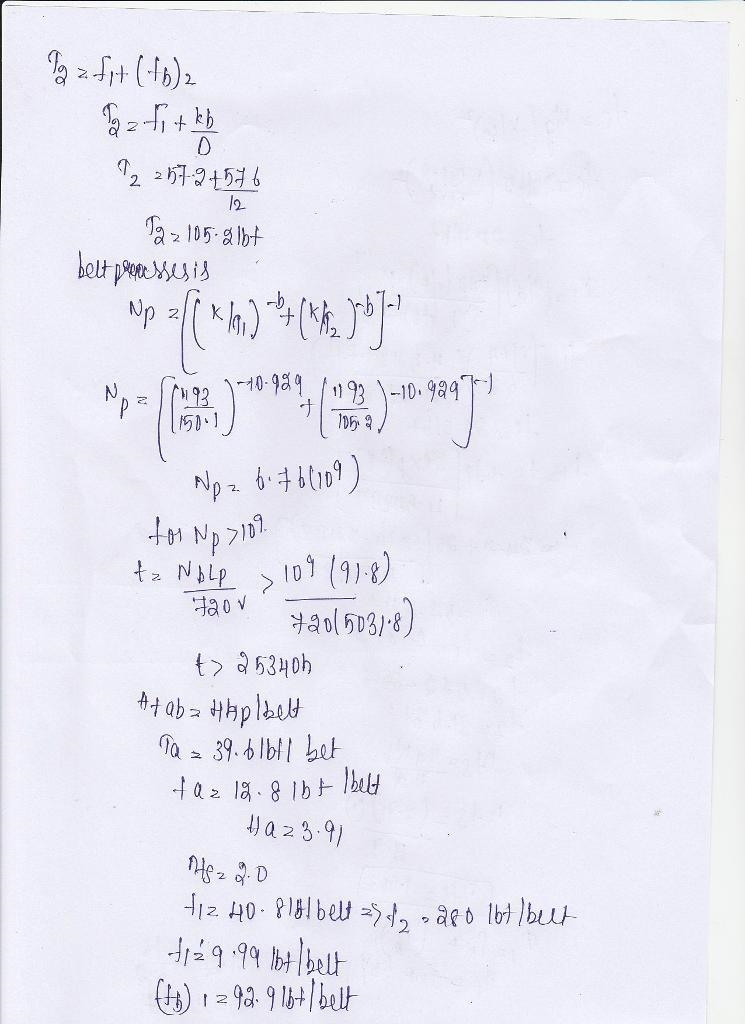 T2 = f1 + (fb)2
T2 = f1 + kb/D
T2 = 57.2 + 576/12
T2 = 105.2 lbf
belt processes is
Np = [(K/T1)^-b + (K/T2)^-b]^-1
Np = [(1193/150.1)^-10.929 + (1193/105.2)^-10.929]^-1
Np = 6.76(10^9)
for Np > 10^9
t = NbLp/720V > 10^9 (91.8)/720(5031.8)
t > 25340h
Htab = 4Hp/belt
Ta = 39.6lbf/ belt
fa = 12.8 lbf /belt
Ha = 3.91
nfs = 2.0
f1 = 40.8lbf/belt => f2 = 280 lbf/belt
fi = 9.99 lbf/belt
(fb)1 = 92.9 lbf/belt